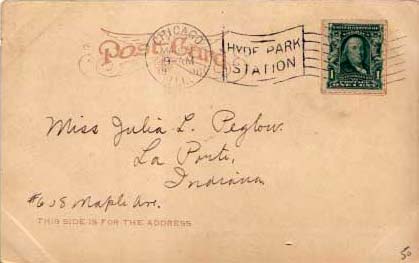 Post Card
CHICAGO
ILL.
HYDE PARK
STATION
1
1
ONE CENT
Miss Julia L. Peglow.
La Porte,
Indiana
Maple Ave.
THIS SIDE IS FOR THE ADDRESS
50